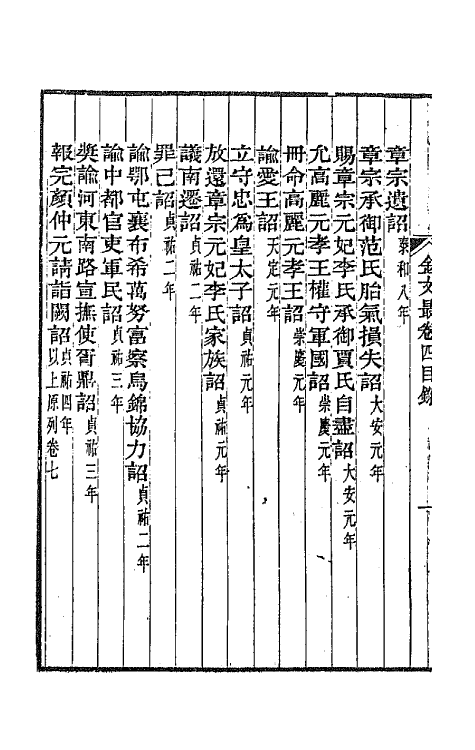 金文最卷四目錄
一
章宗遺詔 泰和八年
章宗承御范氏胎氣損失詔 大安元年
賜章宗元妃李氏承御賈氏自盡詔 大安元年
允高麗元孝王權守軍國詔 崇慶元年
冊命高麗元孝王詔 崇慶元年
諭愛王詔 天定元年
立守忠爲皇太子詔 貞祐元年
放還章宗元妃李氏家族詔 貞祐元年
議南遷詔 貞祐二年
罪己詔 貞祐二年
諭鄂屯襄布希萬努富察烏錦協力詔 貞祐二年
諭中都官吏軍民詔 貞祐三年
獎諭河東南路宣撫使胥鼎詔 貞祐三年
報完顏仲元請詣闕詔 貞祐四年 以上原列卷七